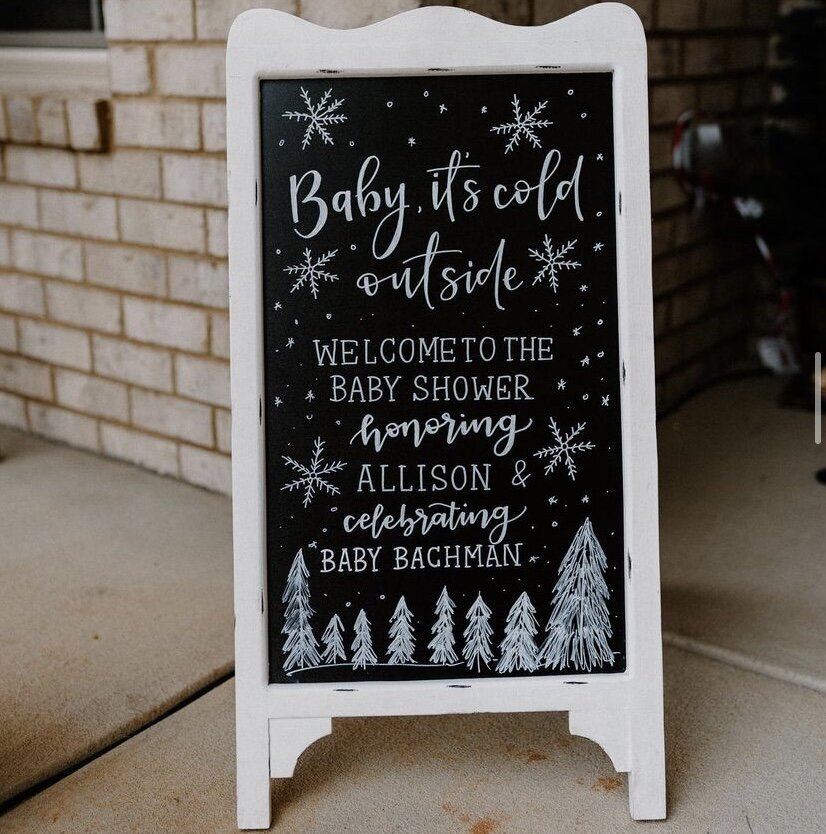 Baby, it's cold
outside
WELCOME TO THE
BABY SHOWER
honoring
ALLISON &
celebrating
BABY BACHMAN